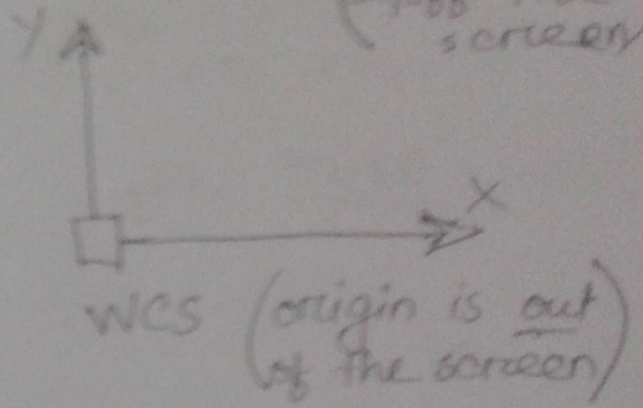 screen
Y
X
WCS (origin is out
of the screen)